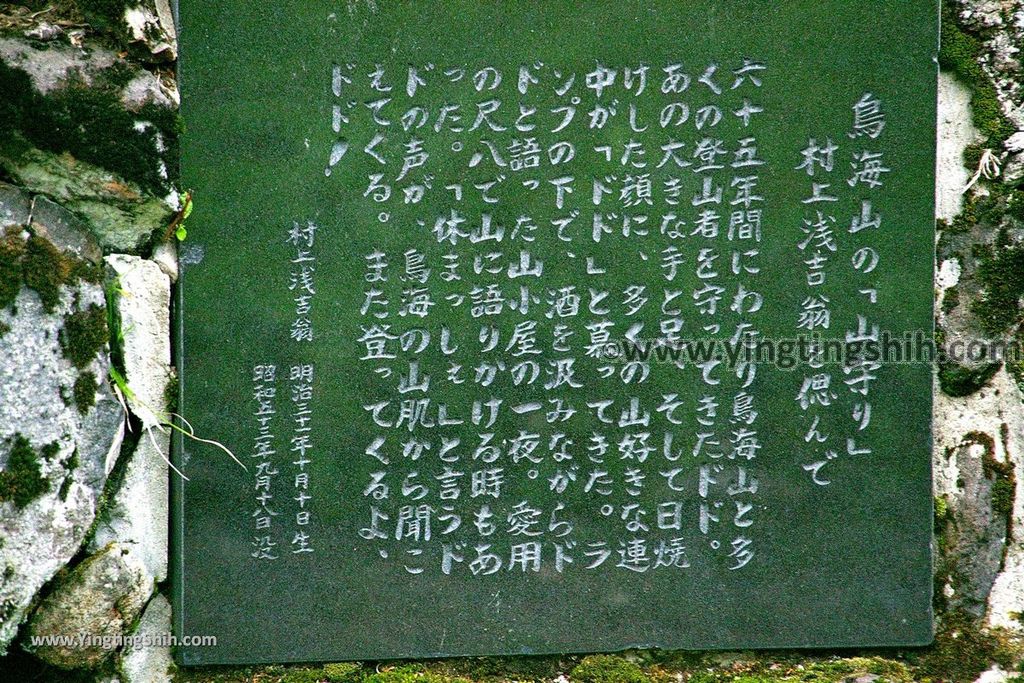 鳥海山の「山守り」
村上浅吉翁を偲んで
六十五年間にわたり鳥海山と多
くの登山者を守ってきたドド。
あの大きな手と足、そして日焼
けした顔に、多くの山好きな連
中が「ドド」と慕ってきた。ラ
ンプの下で、酒を汲みながらド
ドと語った山小屋の一夜。愛用
の尺八で山に語りかける時もあ
った。「休まっしぇ」と言うド
ドの声が、鳥海の山肌から聞こ
えてくる。また登ってくるよ、
ドド!
村上浅吉翁 明治三十一年十月十日生
昭和五十二年九月十八日没
©www.yingtingshih.com
www.YingtingShih.com